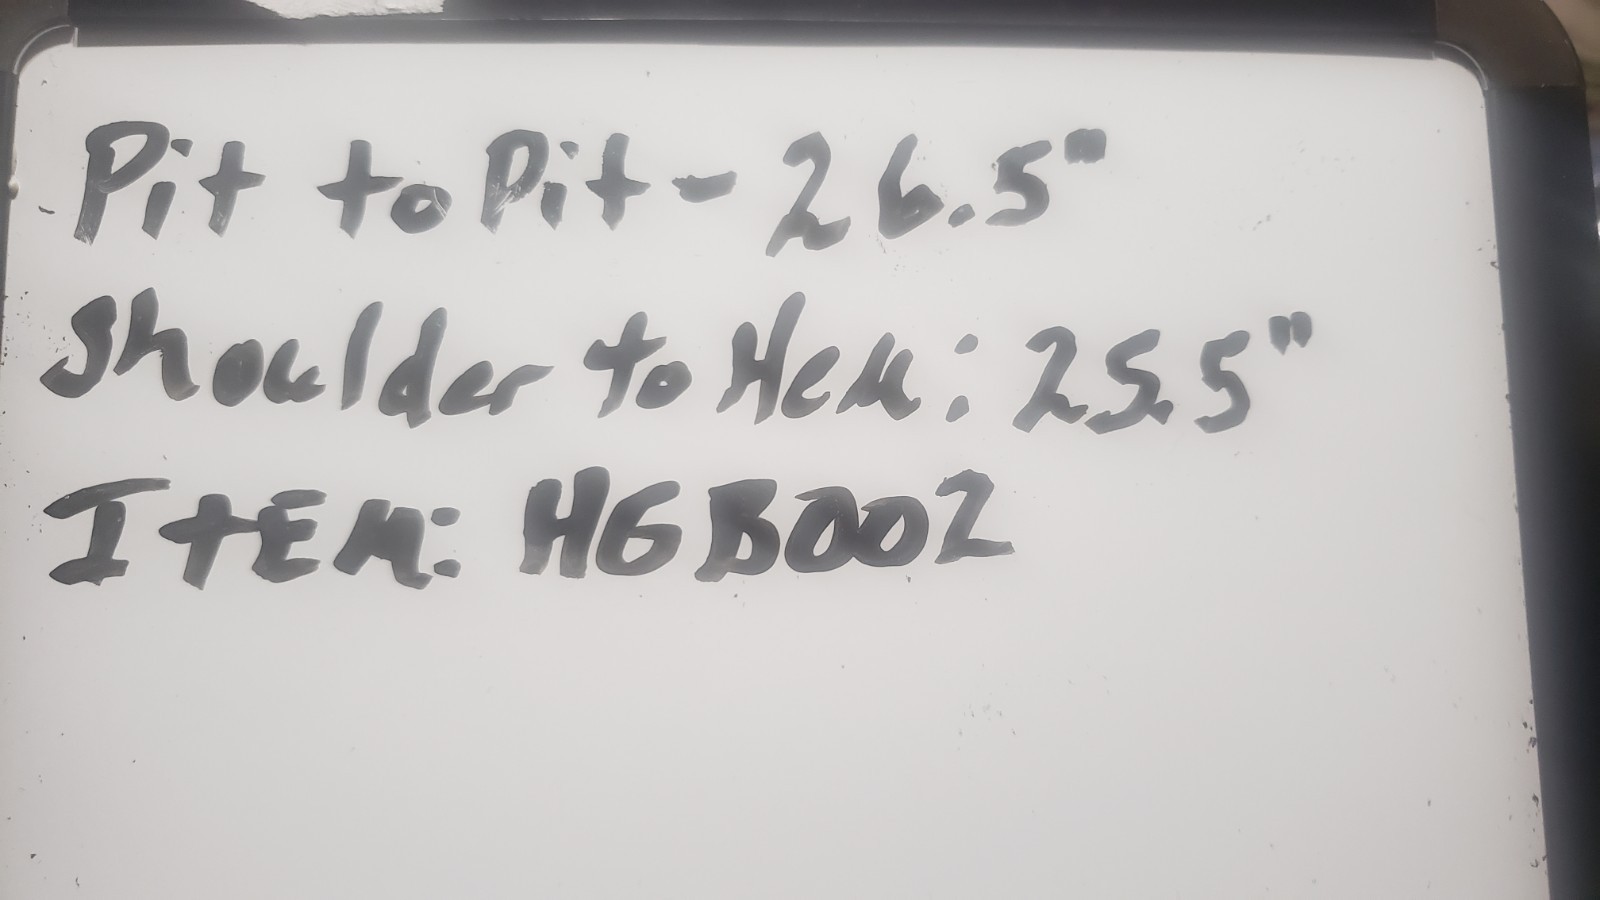 Pit to Pit - 26.5"
Shoulder to Hem: 25.5"
ItEM: HGB002